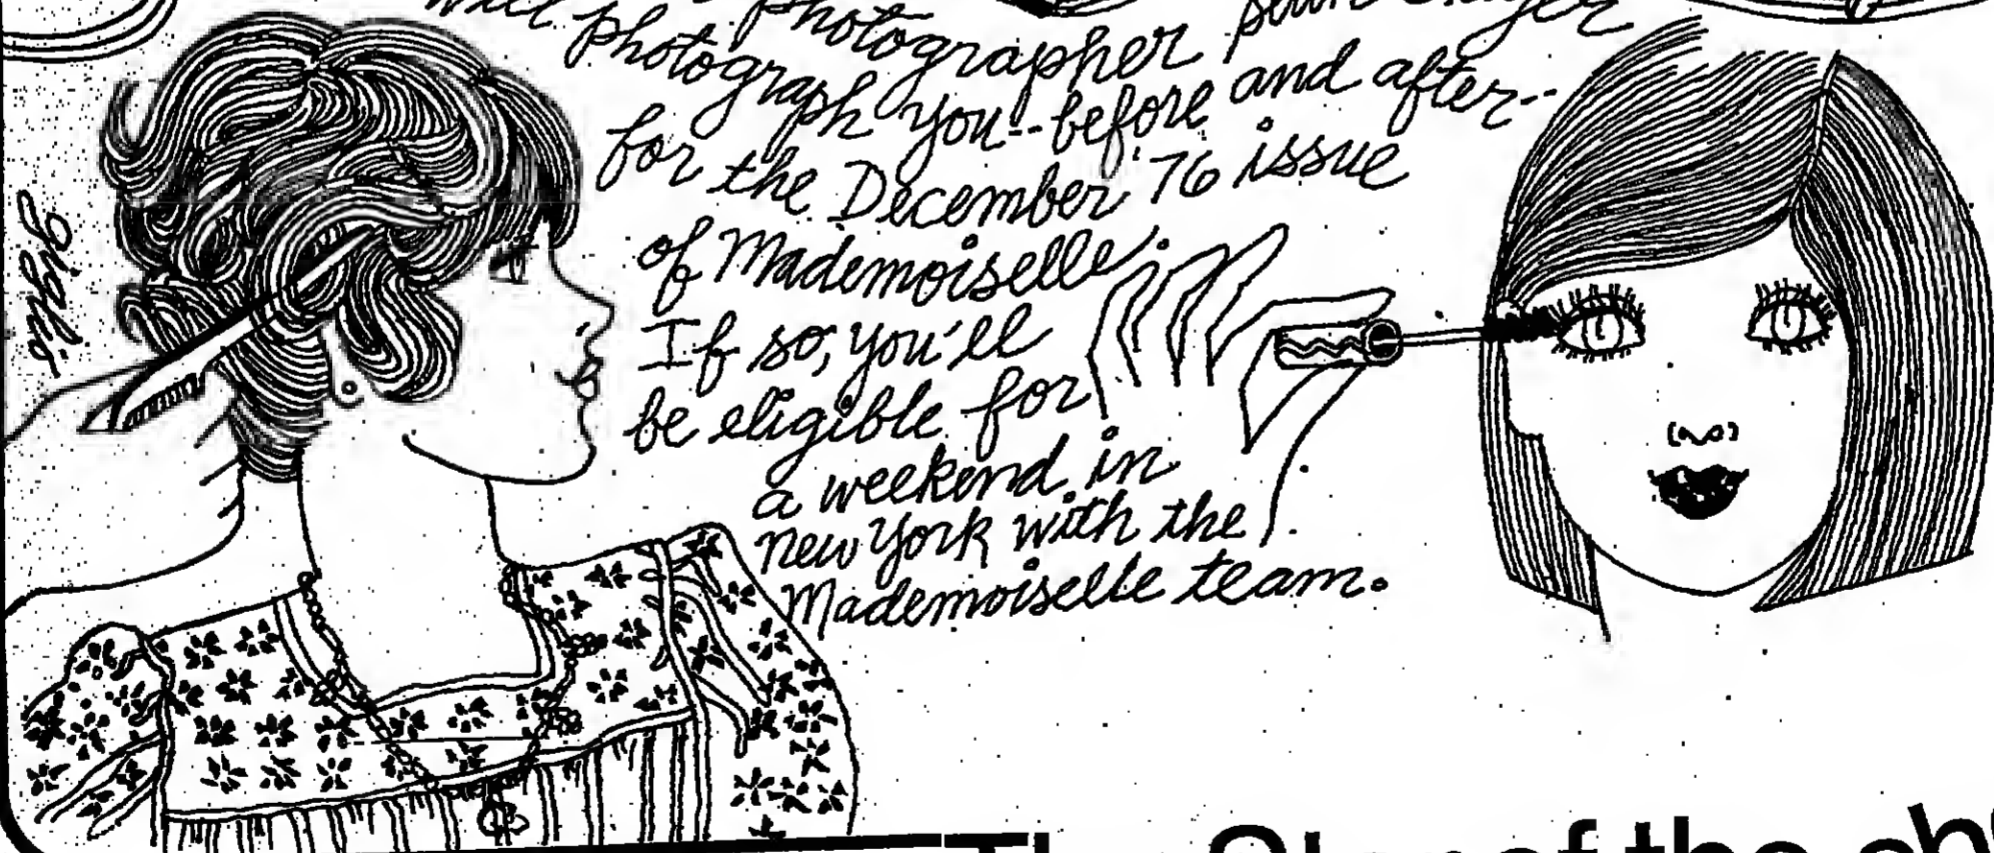 will photographer
photograph you--before and after--
for the December '76 issue
of Mademoiselle.
If so, you'll
be eligible for
a weekend in
New York with the
Mademoiselle team.
The Star of the